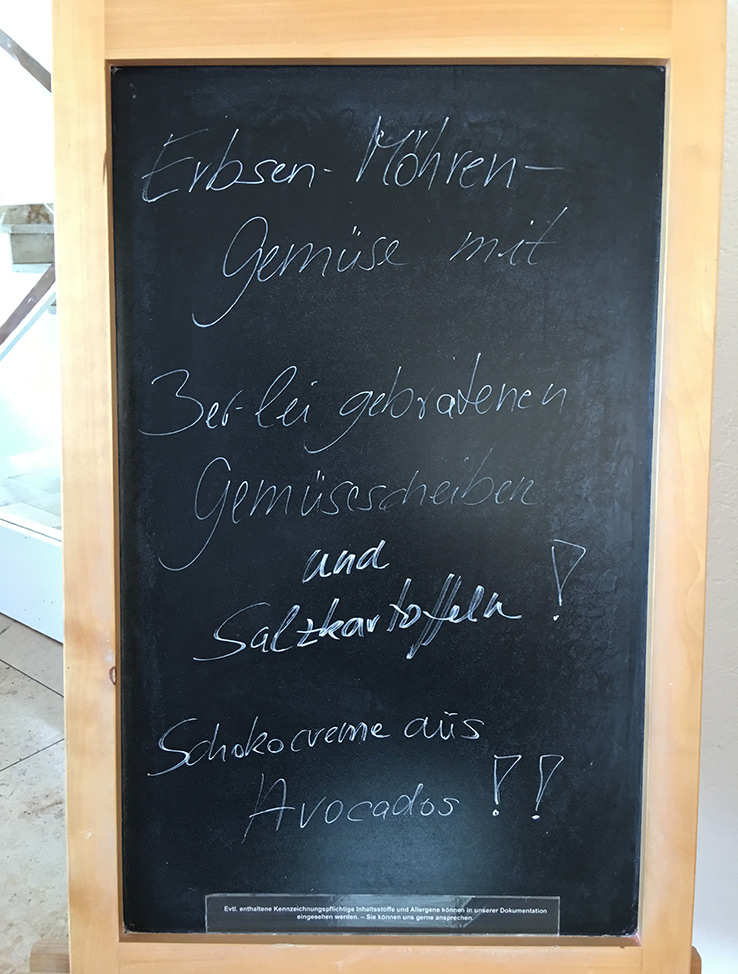 Erbsen-Möhren-
Gemüse mit
3er-lei gebratenen
Gemüsescheiben
und
Salzkartoffeln!
Schokocreme aus
Avocados!!
Evtl. enthaltene Kennzeichnungspflichtige Inhaltsstoffe und Allergene können in unserer Dokumentation
eingesehen werden. – Sie können uns gerne ansprechen.